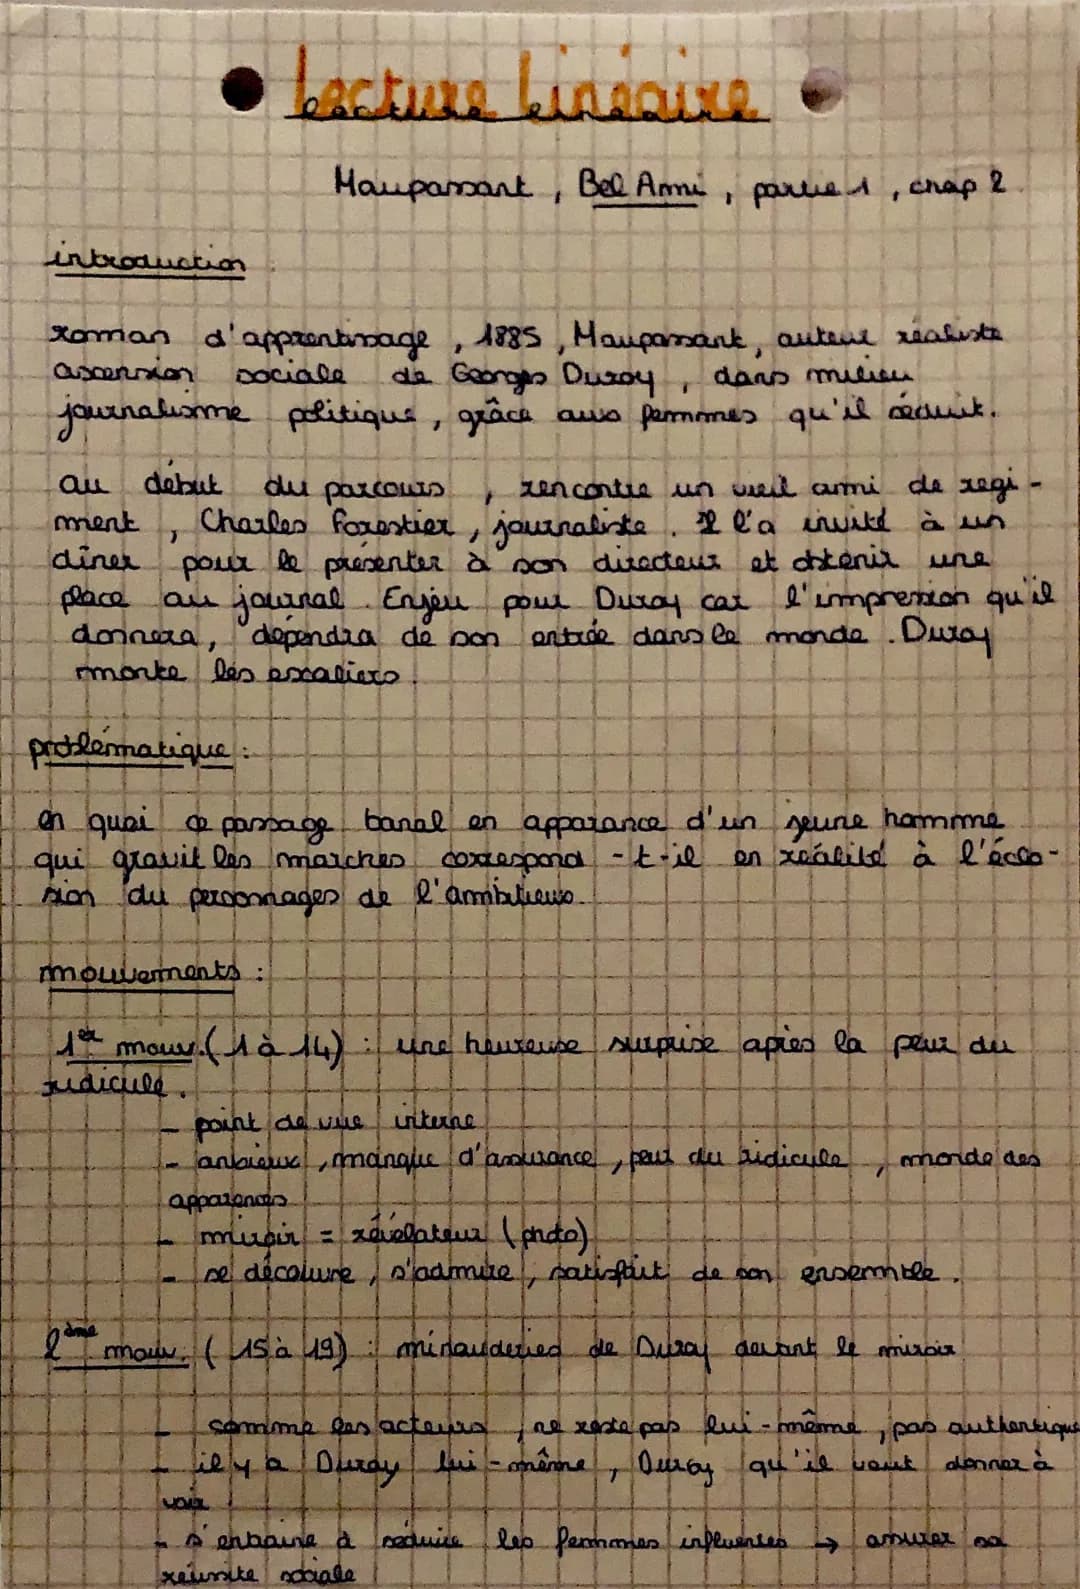 Lecture Linéaire
lecture linéaire
Maupassant, Bel Ami, partie 1, chap 2
introduction
roman d'apprentissage, 1885, Maupassant, auteur réaliste
ascension sociale de Georges Duroy, dans milieu
journalisme politique, grâce aux femmes qu'il séduit.
au début du parcours, rencontre un vieil ami de regi-
ment, Charles Forestier, journaliste. Il l'a invité à un
dîner pour le présenter à son directeur et obtenir une
place au journal. Enjeu pour Duroy car l'impression qu'il
donnera, dépendra de son entrée dans le monde. Duroy
monte les escaliers.
problématique :
en quoi ce passage banal en apparance d'un jeune homme
qui gravit les marches correspond-t-il en réalité à l'éclo-
sion du personnages de l'ambitieux.
mouvements :
1er mouv. (1 à 14) : une heureuse surprise après la peur du
ridicule.
- point de vue interne
- anxieux, manque d'assurance, peur du ridicule, monde des
apparences
- miroir = révélateur (photo)
- se découvre, s'admire, satisfait de son ensemble.
2ème mouv. (15 à 19) : minauderies de Duroy devant le miroir
- comme les acteurs, ne reste pas lui-même, pas authentique
- il y a Duroy lui-même, Duroy qu'il veut donner à
voir
- s'entraine à séduire les femmes influentes → assurer sa
réussite sociale